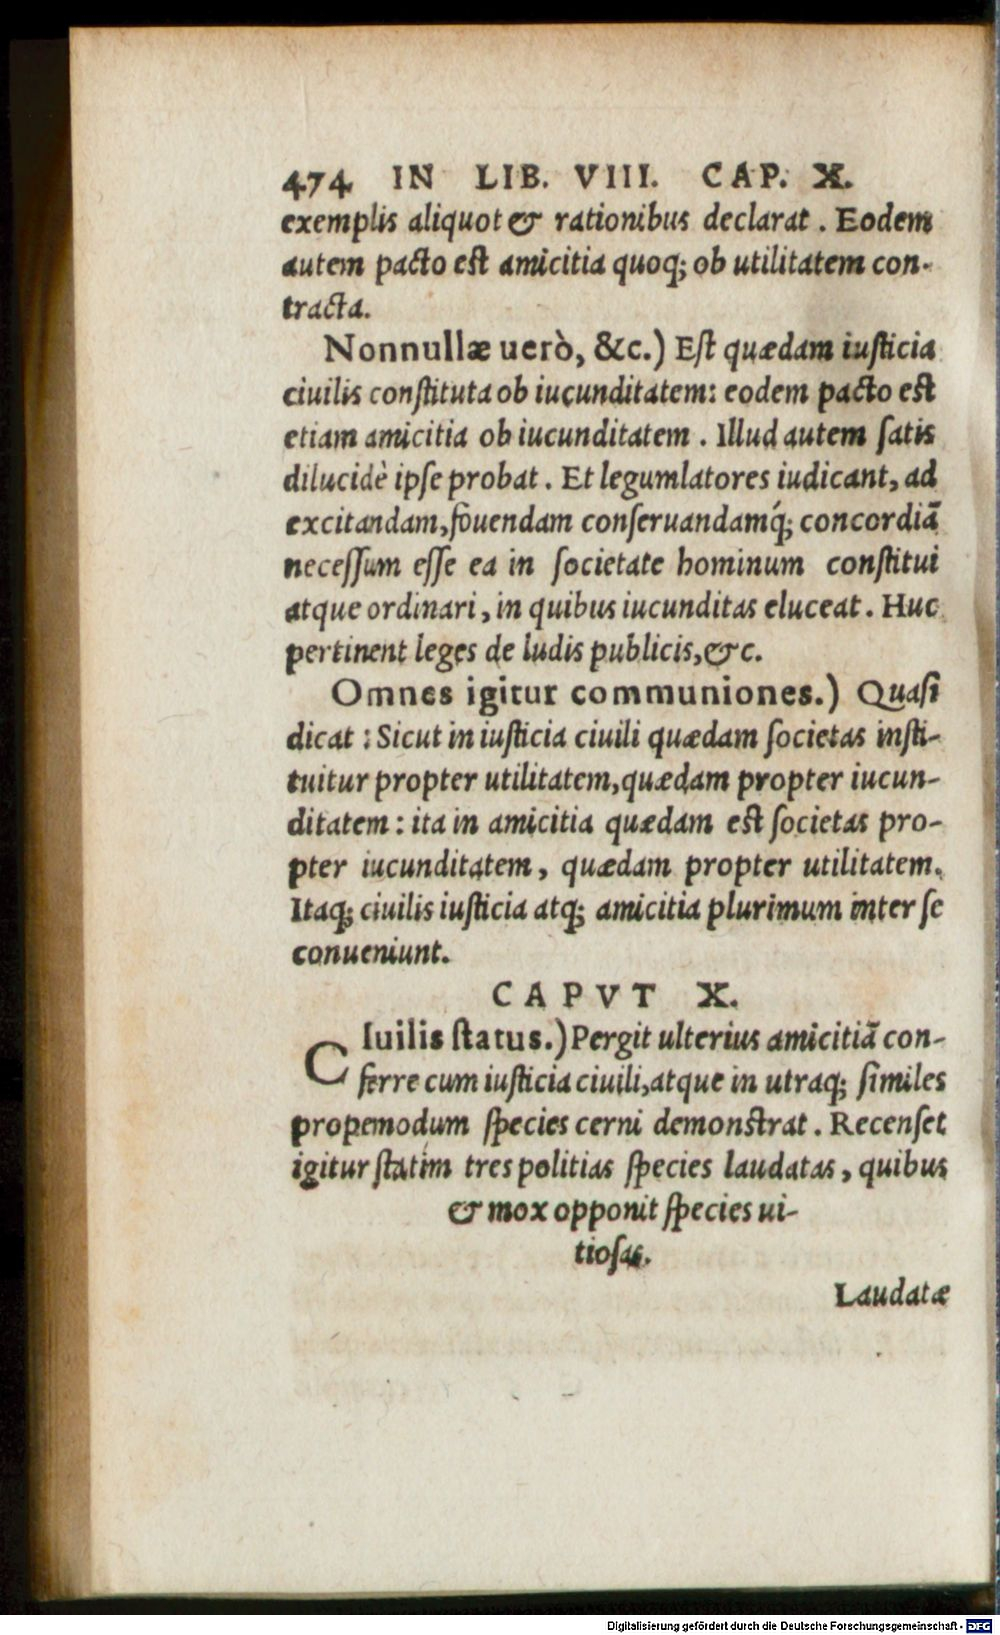 474 IN LIB. VIII. CAP. X.
exemplis aliquot & rationibus declarat. Eodem
autem pacto est amicitia quoq; ob utilitatem con-
tracta.
Nonnullæ uerò, &c.) Est quædam iusticia
ciuilis constituta ob iucunditatem: eodem pacto est
etiam amicitia ob iucunditatem. Illud autem satis
dilucidè ipse probat. Et legumlatores iudicant, ad
excitandam, fouendam conseruandamq́; concordiã
necessum esse ea in societate hominum constitui
atque ordinari, in quibus iucunditas eluceat. Huc
pertinent leges de ludis publicis, &c.
Omnes igitur communiones.) Quasi
dicat: Sicut in iusticia ciuili quædam societas insti-
tuitur propter utilitatem, quædam propter iucun-
ditatem: ita in amicitia quædam est societas pro-
pter iucunditatem, quædam propter utilitatem.
Itaq; ciuilis iusticia atq; amicitia plurimum inter se
conueniunt.
CAPVT X.
CIuilis status.) Pergit ulterius amicitiã con-
ferre cum iusticia ciuili, atque in utraq; similes
propemodum species cerni demonstrat. Recenset
igitur statim tres politias species laudatas, quibus
& mox opponit species ui-
tiosas.
Laudatæ
Digitalisierung gefördert durch die Deutsche Forschungsgemeinschaft - DFG